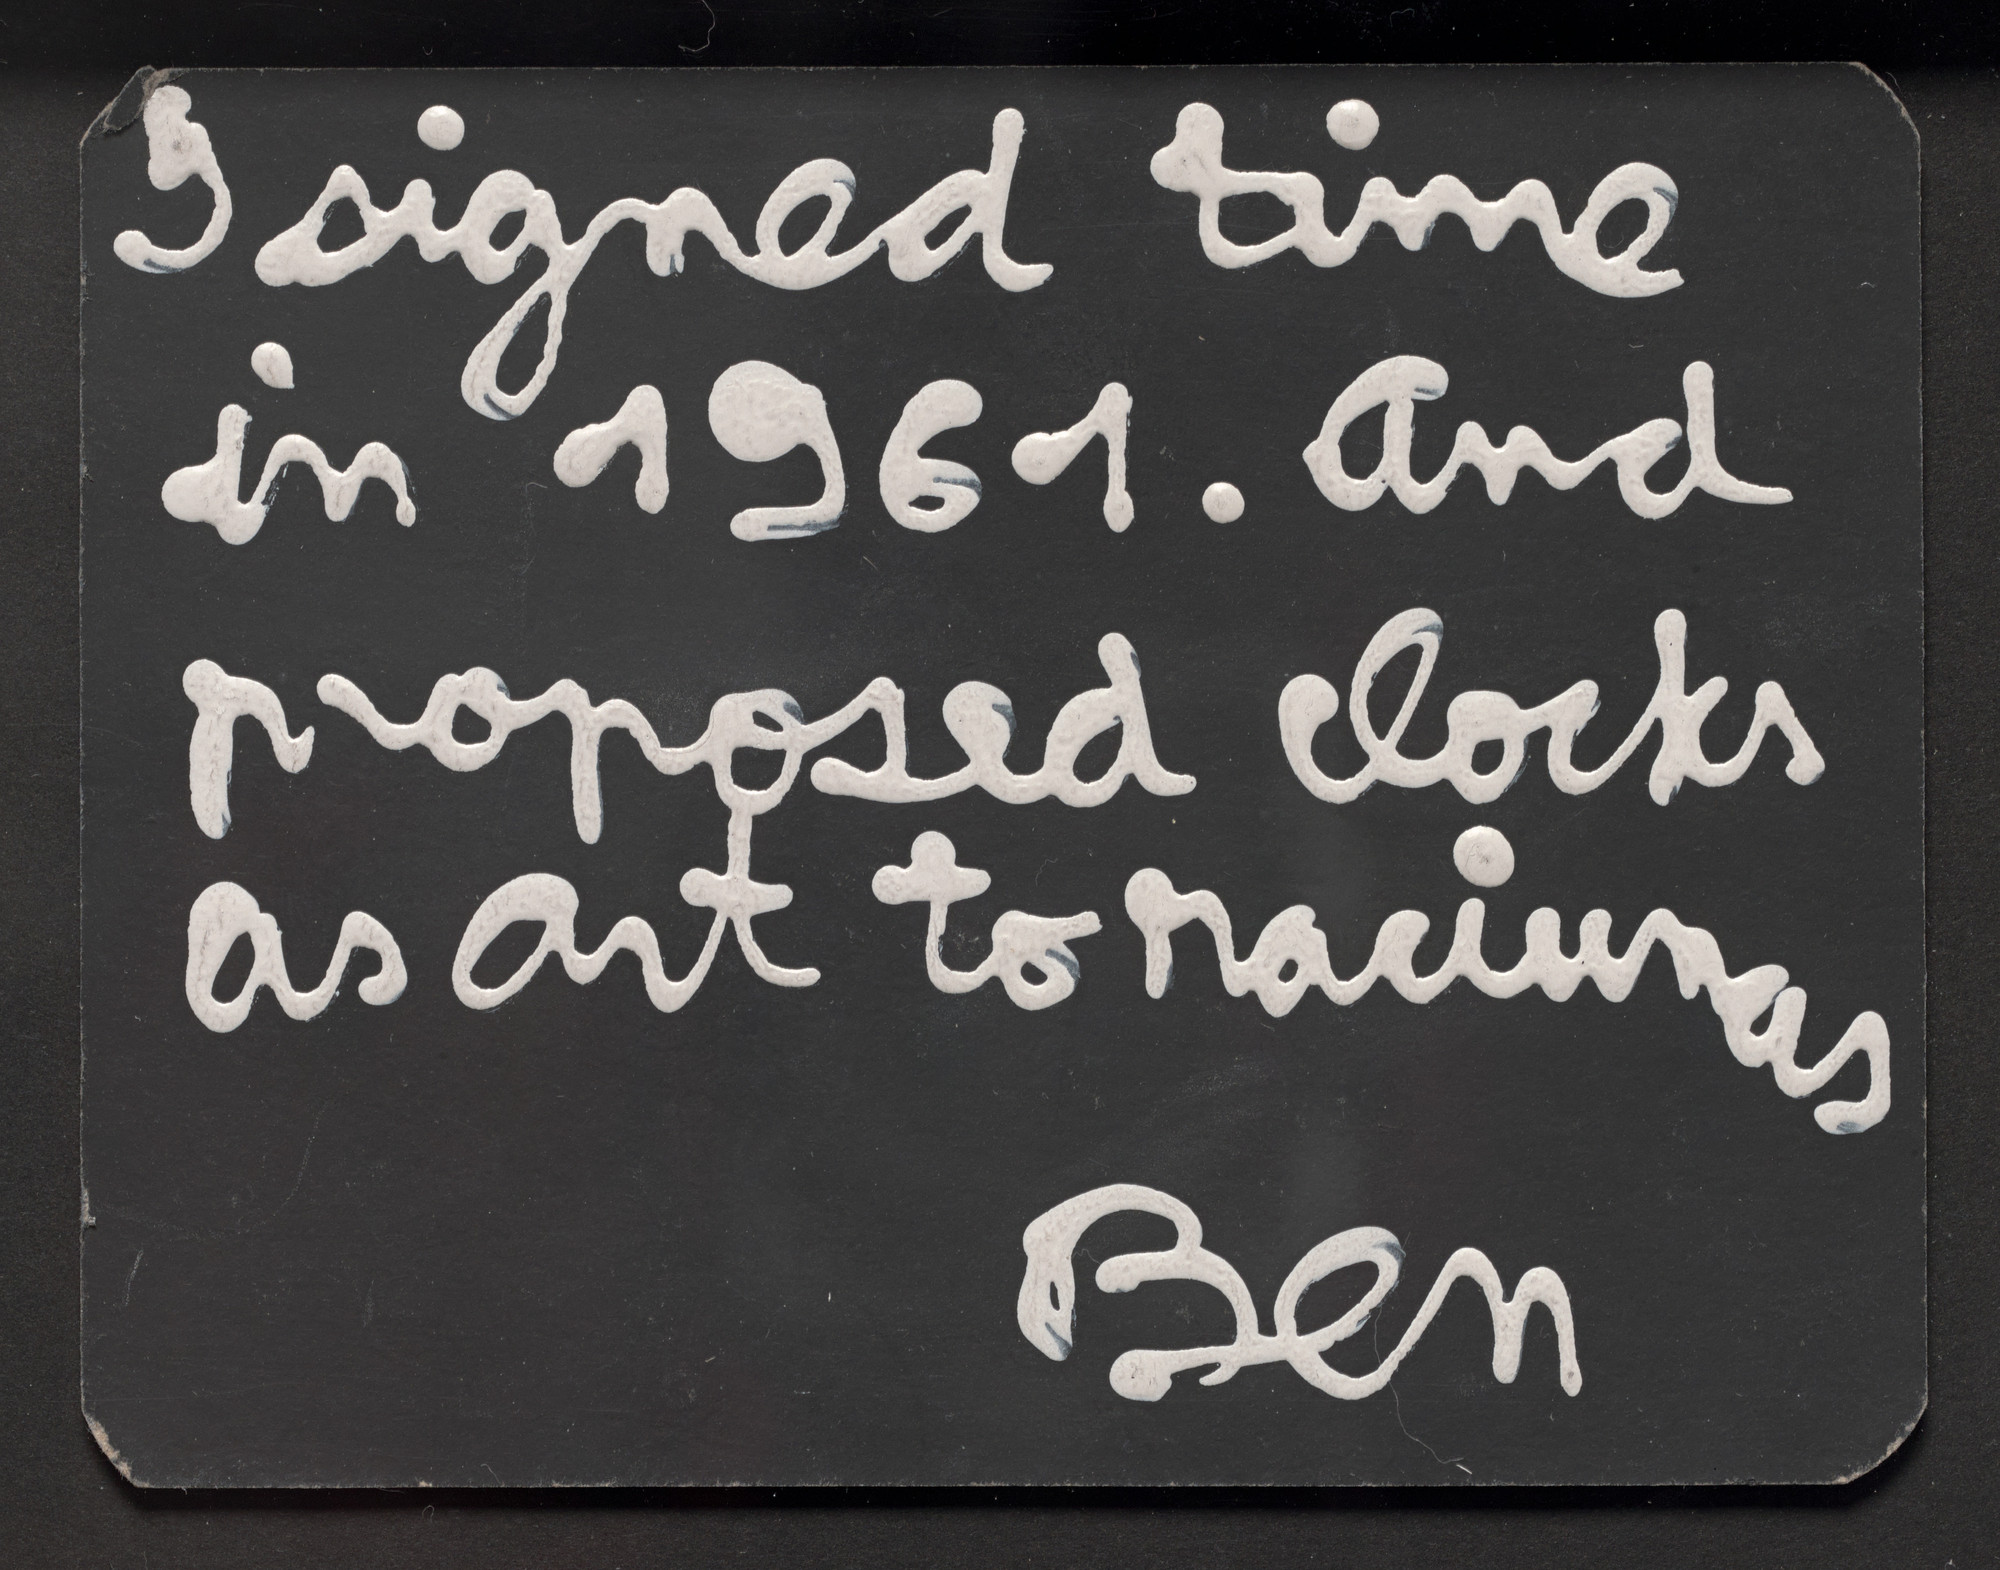 I signed time
in 1961. And
proposed clocks
as art to maciunas
Ben